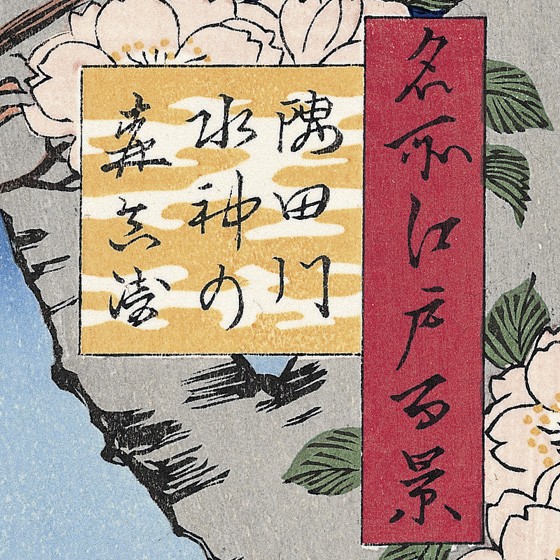 名所江戸百景
隅田川
水神の
森真崎